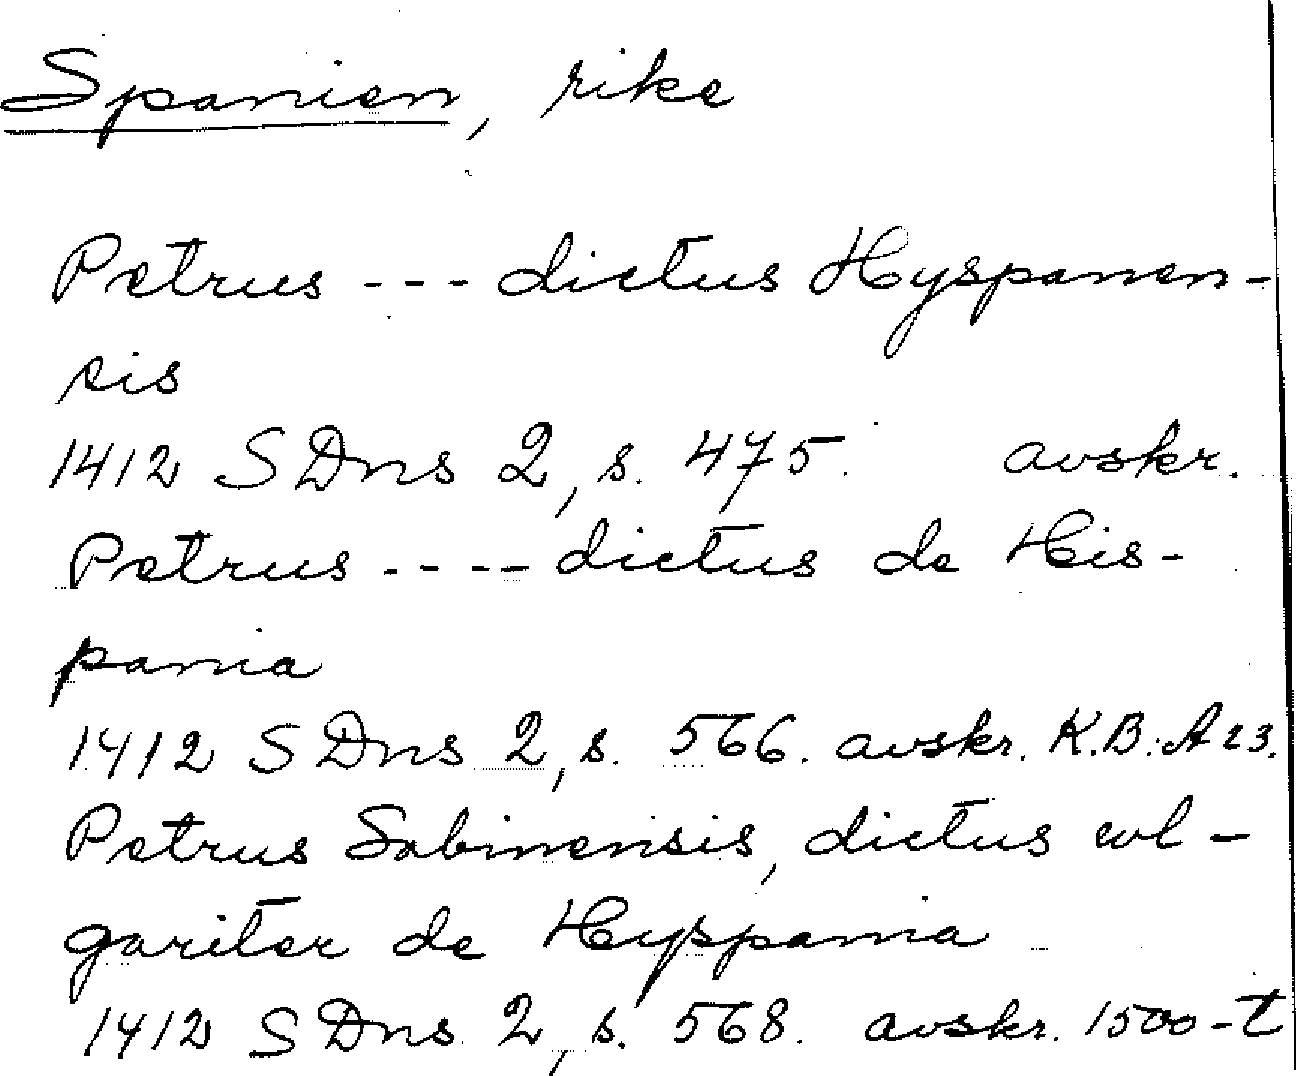 Spanien, rike
Petrus --- dictus Hyspanen-
sis
1412 SDns 2, s. 475. avskr.
Petrus ---- dictus de His-
pania
1412 SDns 2, s. 566. avskr. K.B. A 23.
Petrus Sabinensis, dictus wl-
gariter de Hyspania
1412 SDns 2, s. 568. avskr. 1500-t